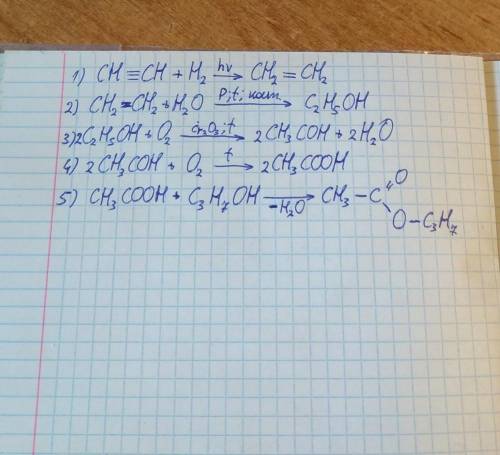 1) CH≡CH + H₂ —hν→ CH₂ = CH₂
2) CH₂=CH₂ + H₂O —P; t; кат.→ C₂H₅OH
3) 2C₂H₅OH + O₂ —Cr₂O₃; t→ 2CH₃COH + 2H₂O
4) 2CH₃COH + O₂ —t→ 2CH₃COOH
5) CH₃COOH + C₃H₇OH —-H₂O→ CH₃ – C O
O – C₃H₇